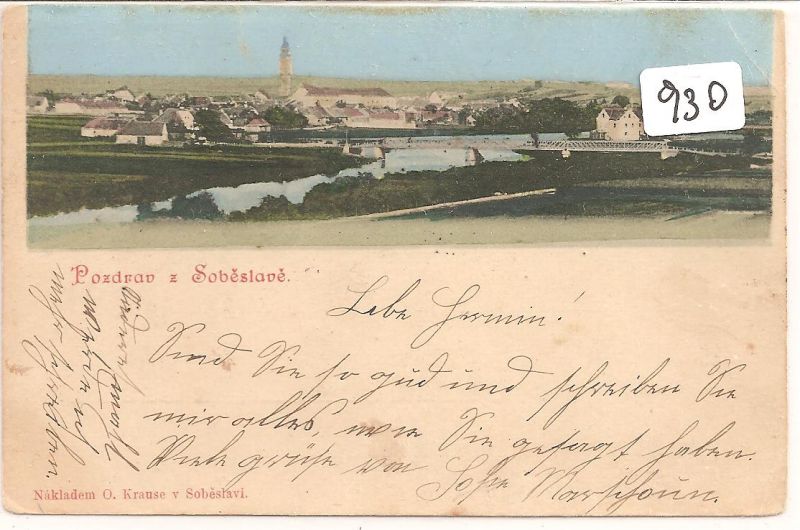 930
Pozdrav z Soběslavě.
Lebe Hermin!
Sind Sie so gud und schreiben Sie
mir alles, was Sie gesagt haben.
Viele grüse von Sofie Marschoun.
Nákladem O. Krause v Soběslavi.